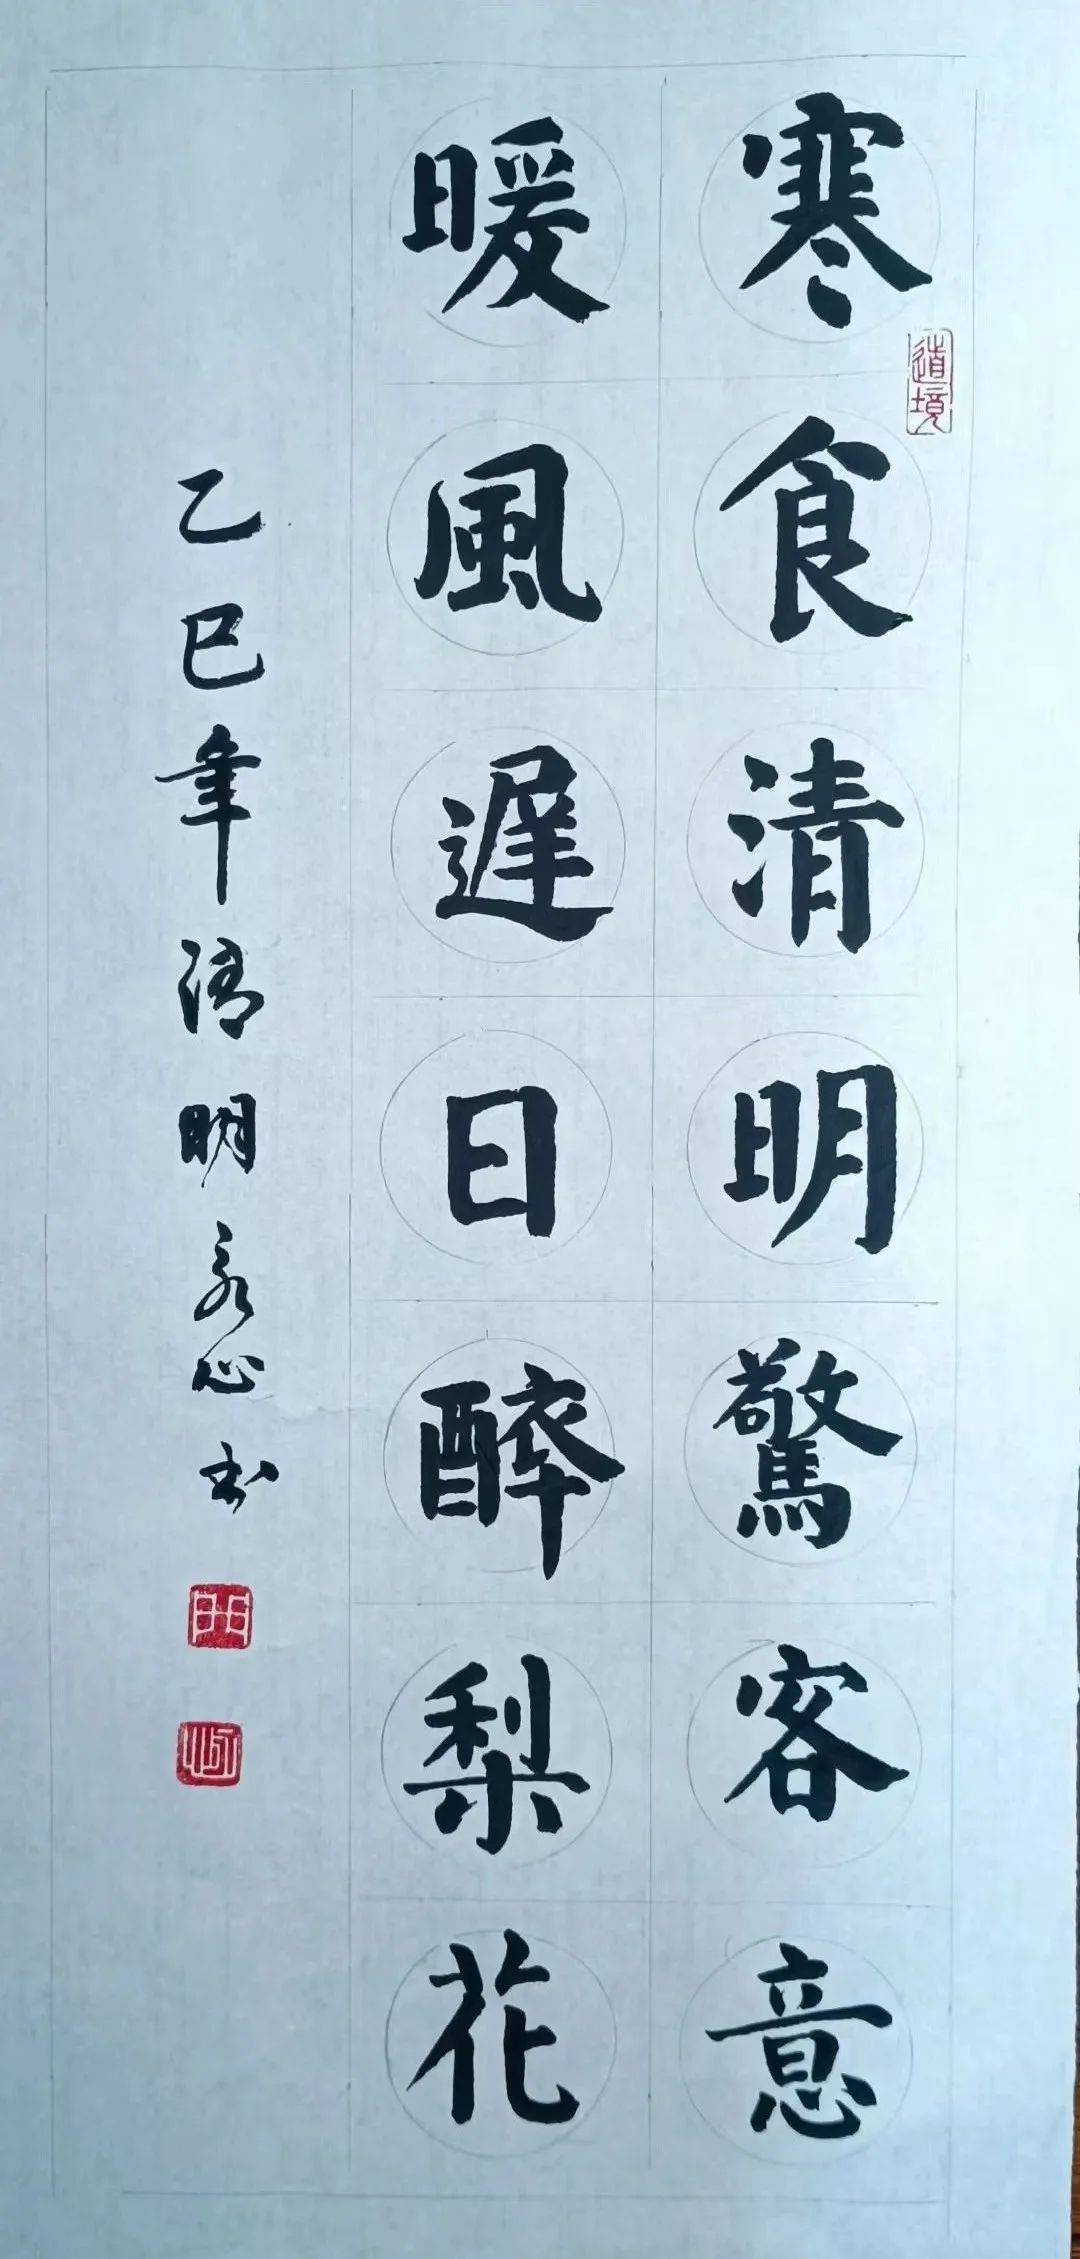 寒食清明驚客意
暖風遲日醉梨花
乙巳年清明永心书
道境